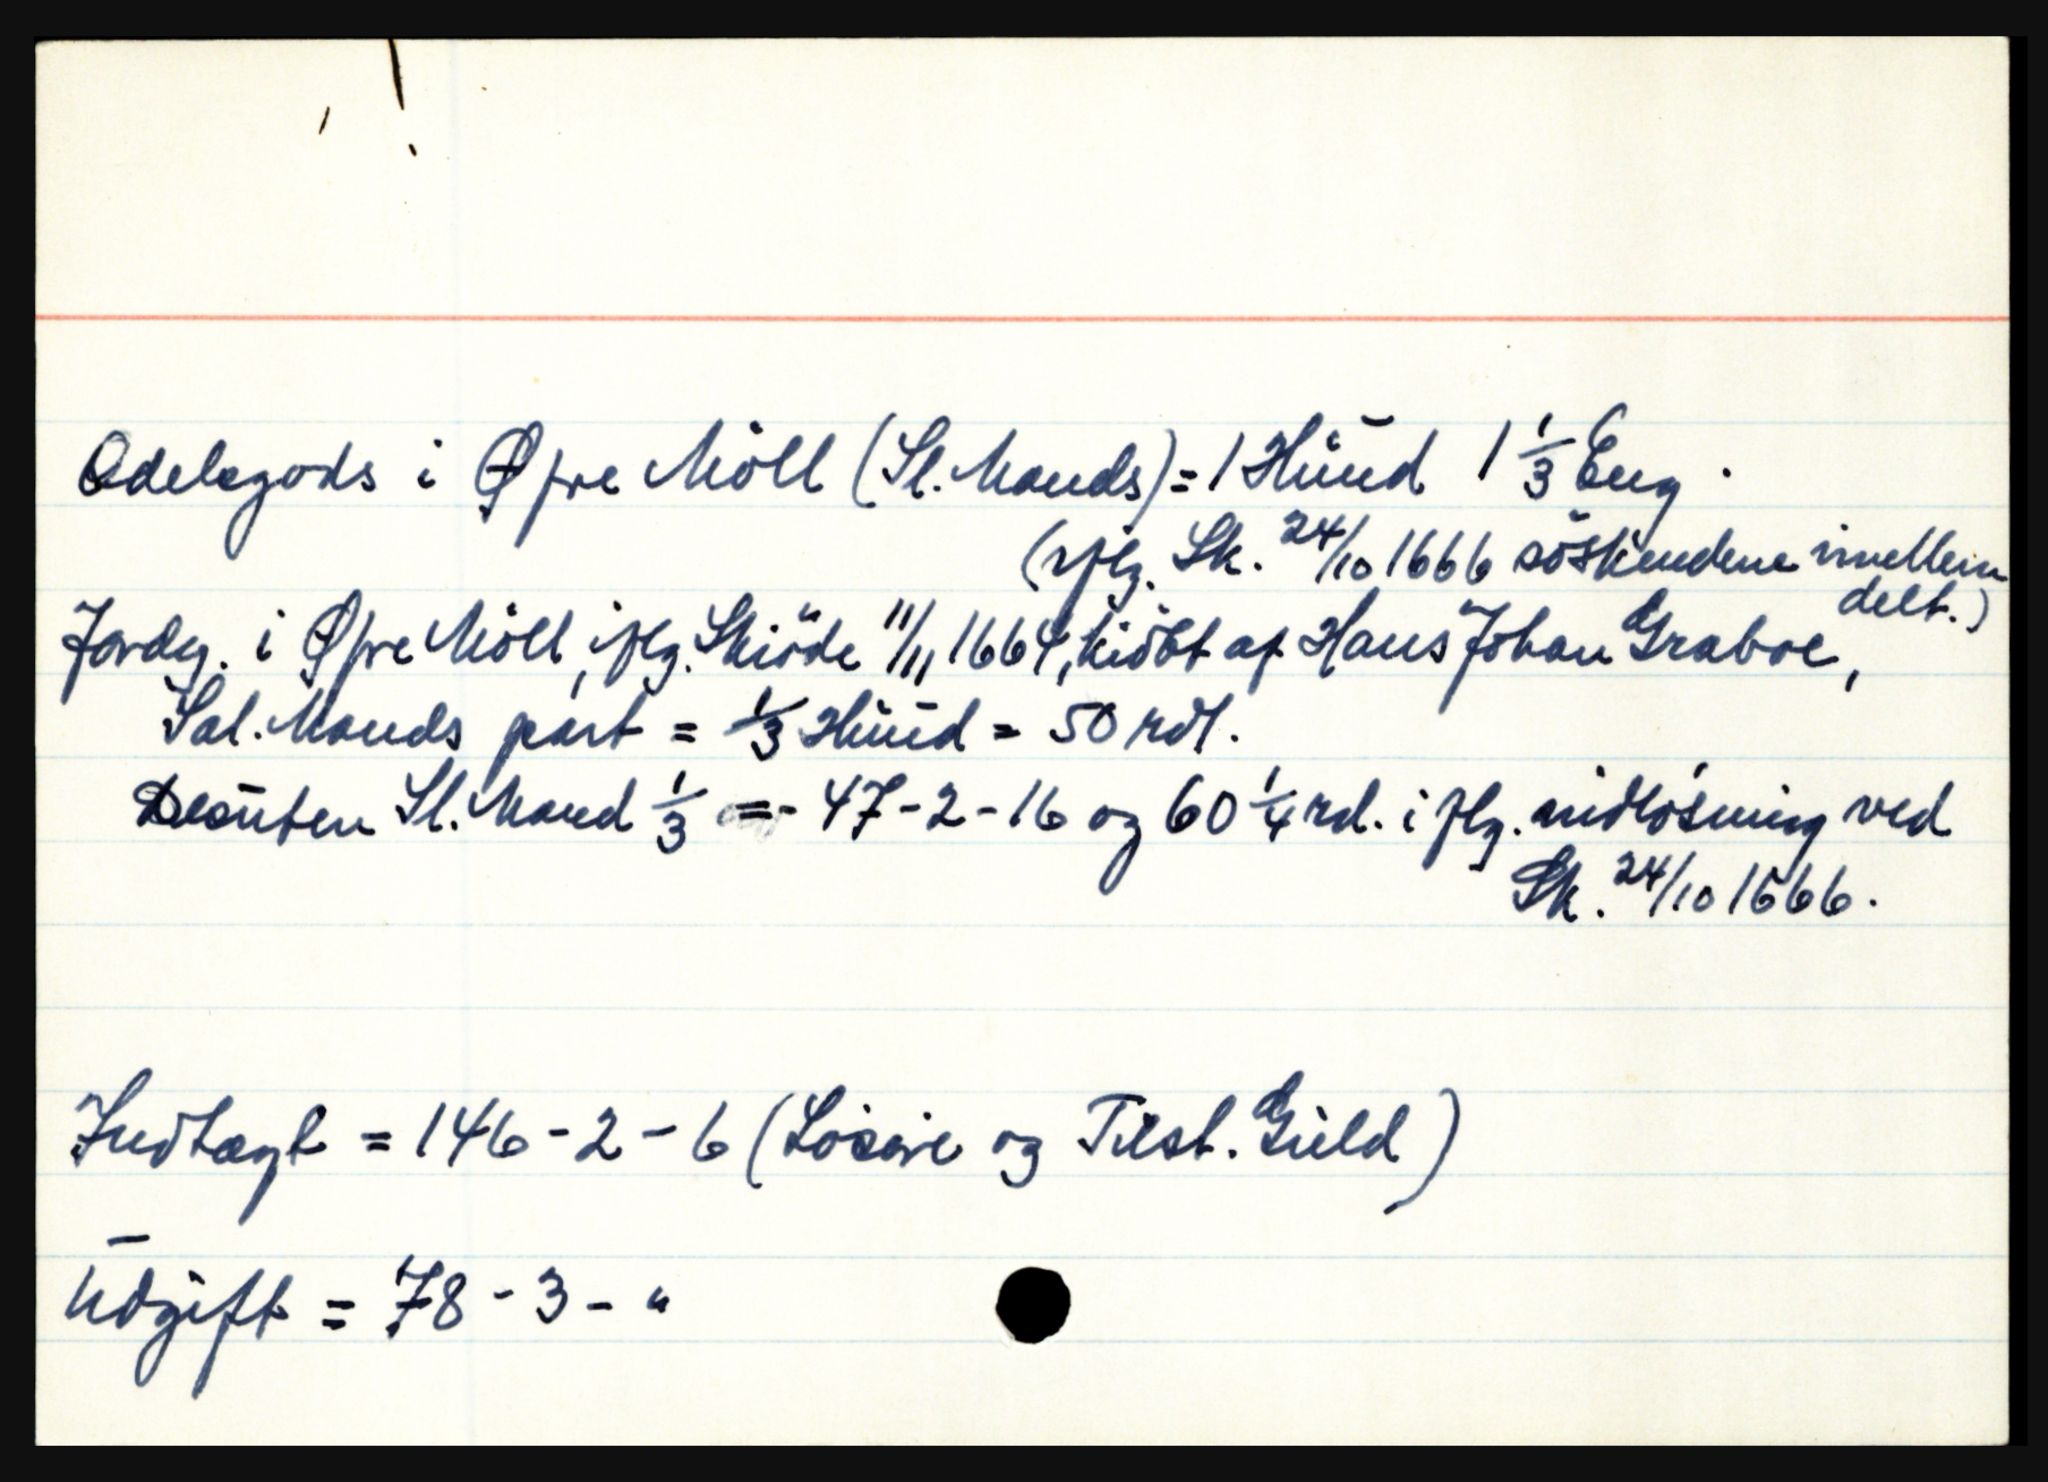 Odelsgods i Øfre Möll (Sl. Mands) = 1 Hūud 1 1/3 Eng.
(ifølg. Sk. 24/10 1666 söskendene imellem
delt.)
Jordeg. i Øfre Möll, iflg. Skiöde 11/11 1664, kiöbt af Hans Johan Graboe,
Sal. Mands part = 1/3 Hūud = 50 rdl.
Desūten Sl. Mand 1/3 = - 47-2-16 og 60 1/4 rd. iflg. indlösning ved
Sk. 24/10 1666.
Indtægt = 146-2-6 (Lösöre og Tilst. Gield)
Ūdgift = 78-3-"